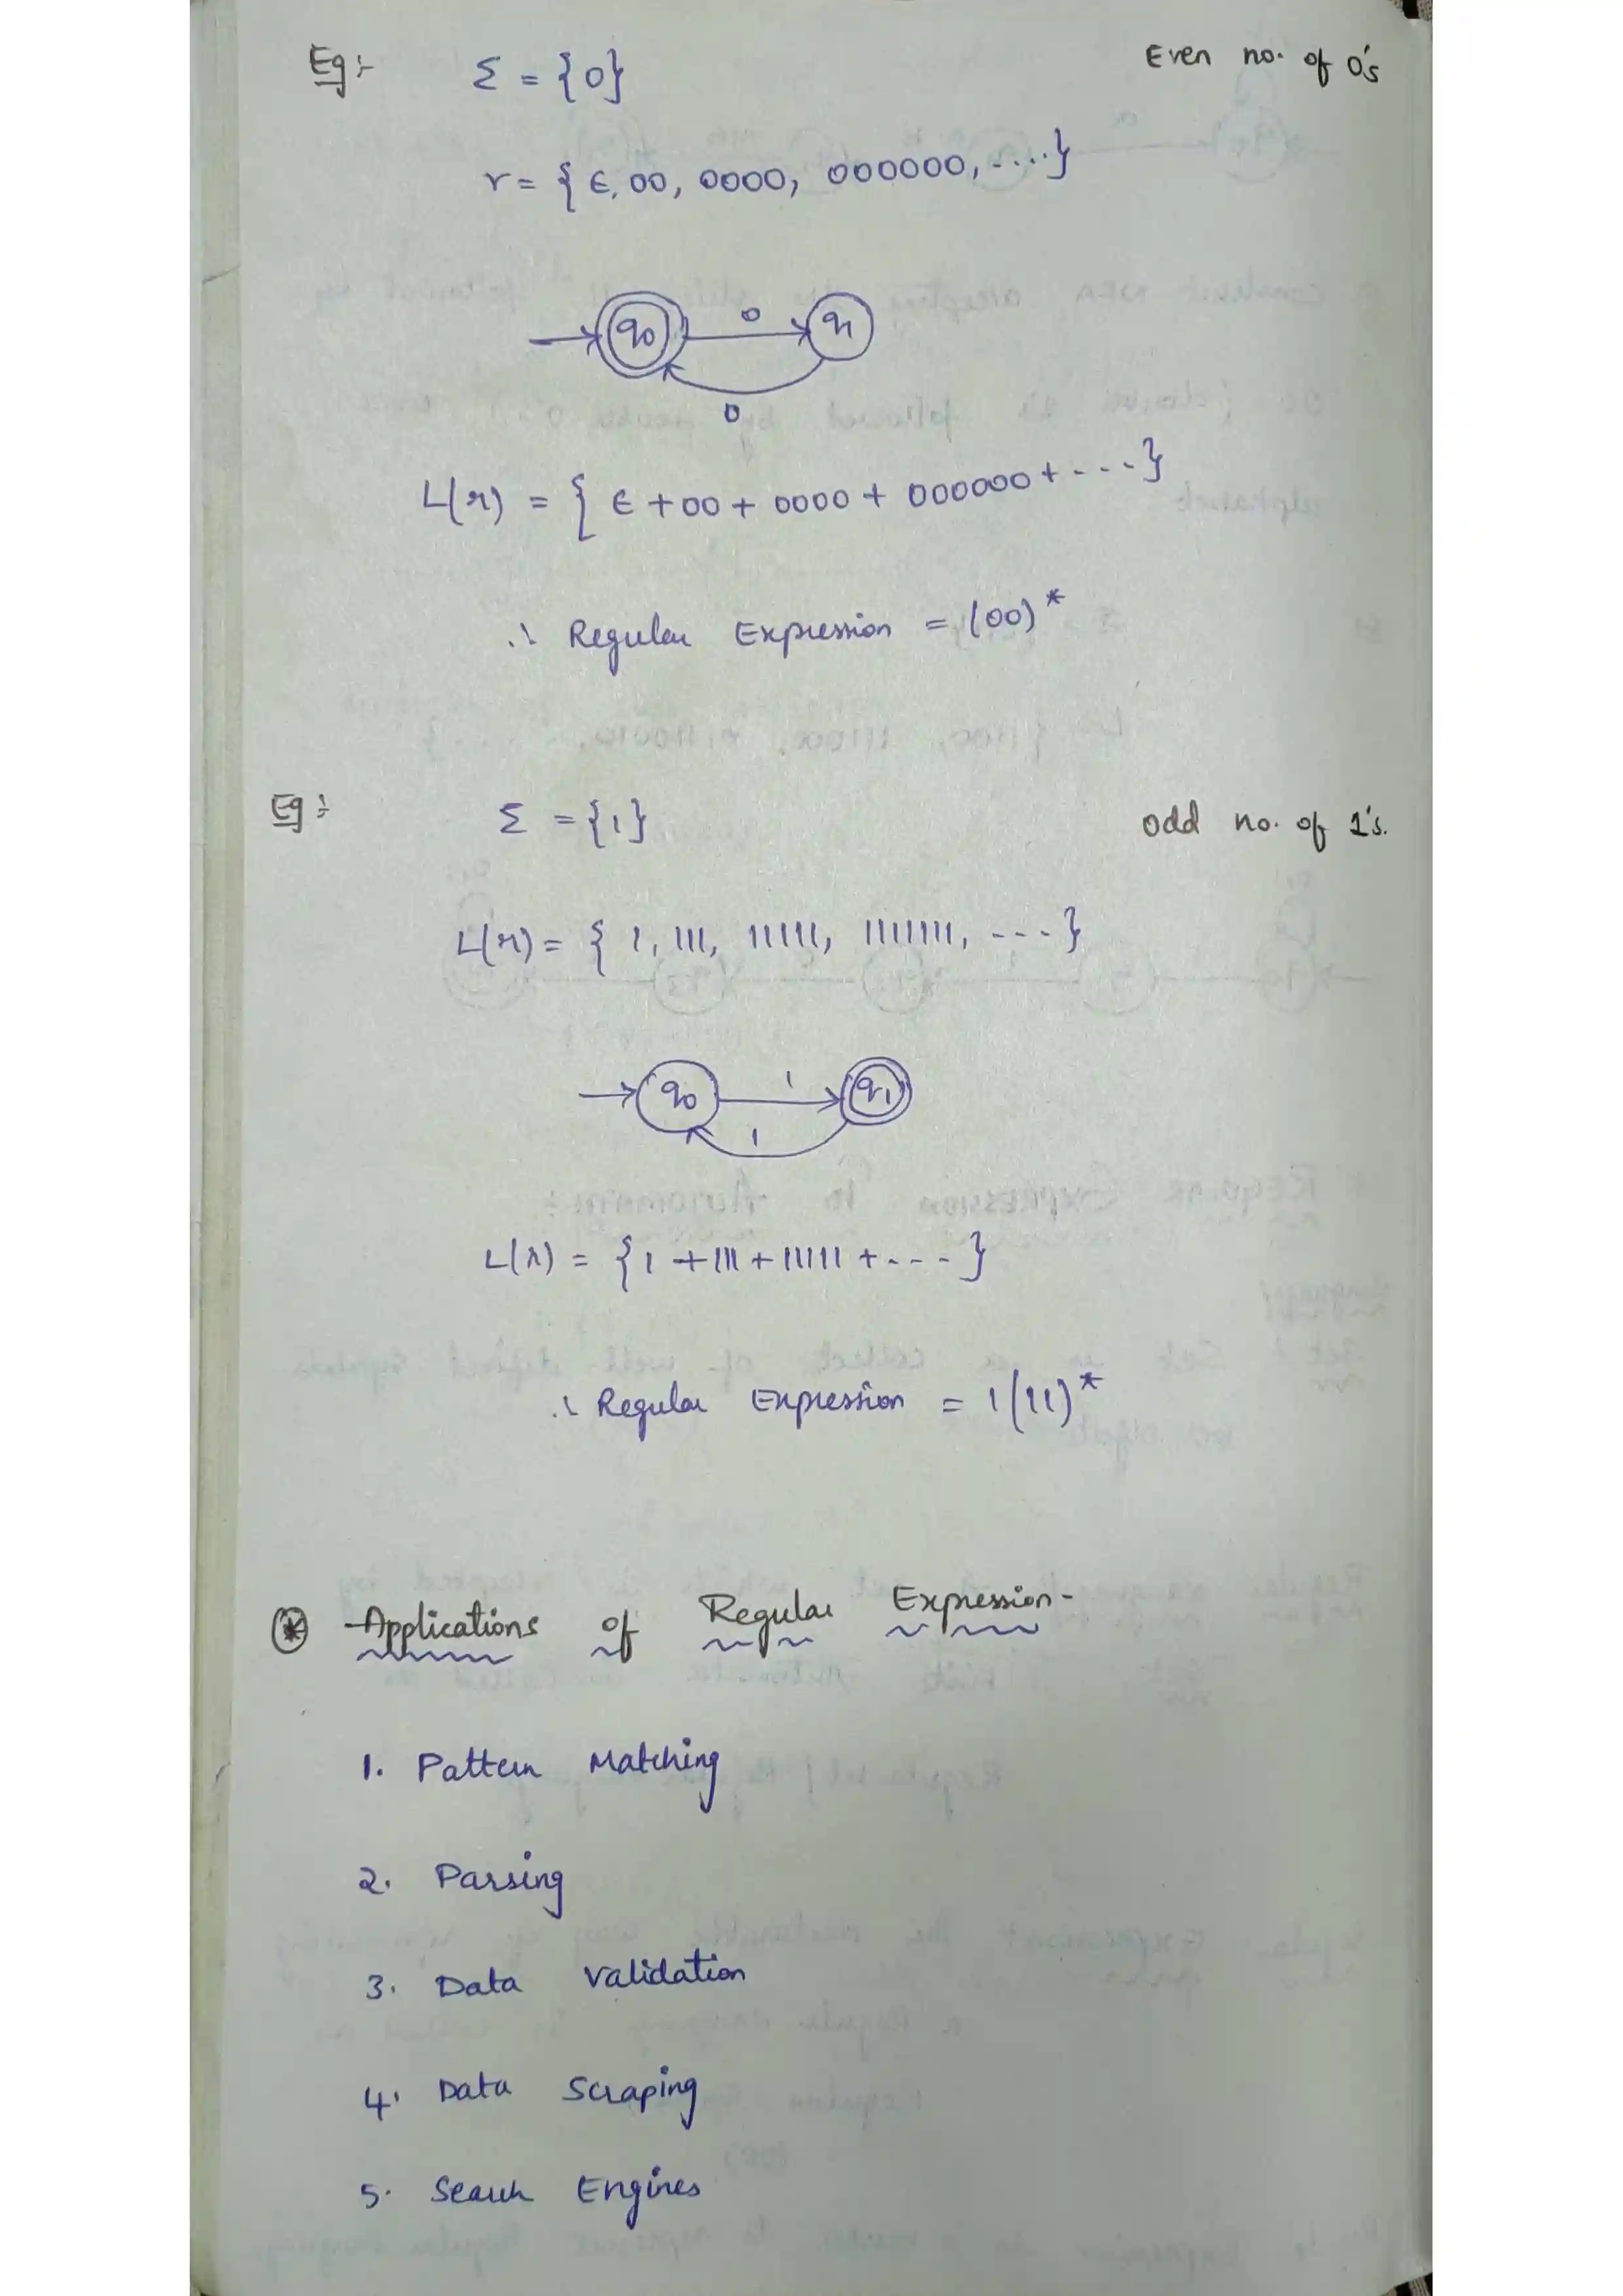 Eg:- Σ = {0} Even no. of 0's
r = { ε, 00, 0000, 000000, ....}
q0 0 q1
0
L(r) = { ε + 00 + 0000 + 000000 + ---}
∴ Regular Expression = (00)*
Eg:- Σ = {1} odd no. of 1's.
L(r) = { 1, 111, 11111, 1111111, ---}
q0 1 q1
1
L(r) = {1 + 111 + 11111 + ---}
∴ Regular Expression = 1(11)*
* Applications of Regular Expression-
1. Pattern Matching
2. Parsing
3. Data Validation
4. Data Scraping
5. Search Engines